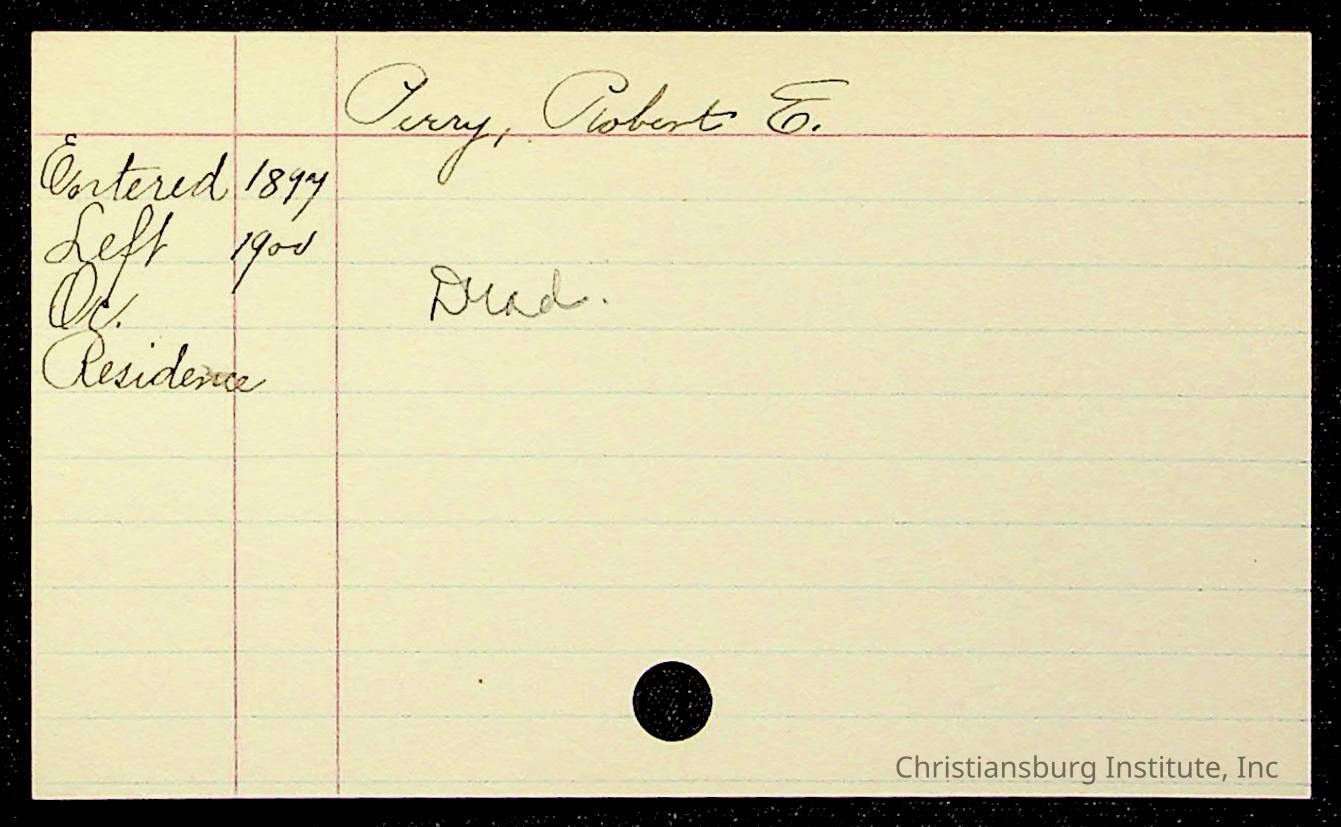 Perry, Robert E.
Entered 1897
Left 1900
Oc.
Dead.
Residence
Christiansburg Institute, Inc